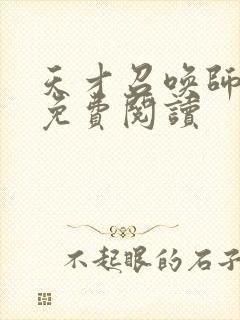 天才召唤師
免費閱讀
不起眼的石子